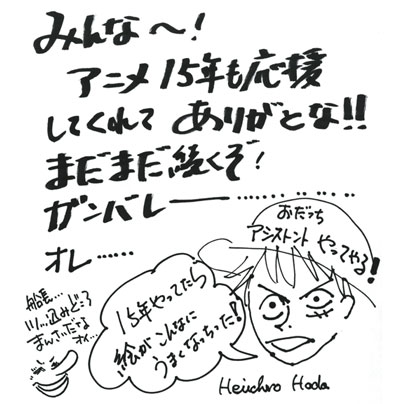 みんな〜!
アニメ15年も応援
してくれて ありがとな!!
まだまだ続くぞ!
ガンバレー…………
オレ……
おだっち
アシストント やってやる!
15年やってたら
絵がこんなに
うまくなっちった!
船長…
ツッ込みどころ
まんさいだな
オイ…
Heiichiro Hoda